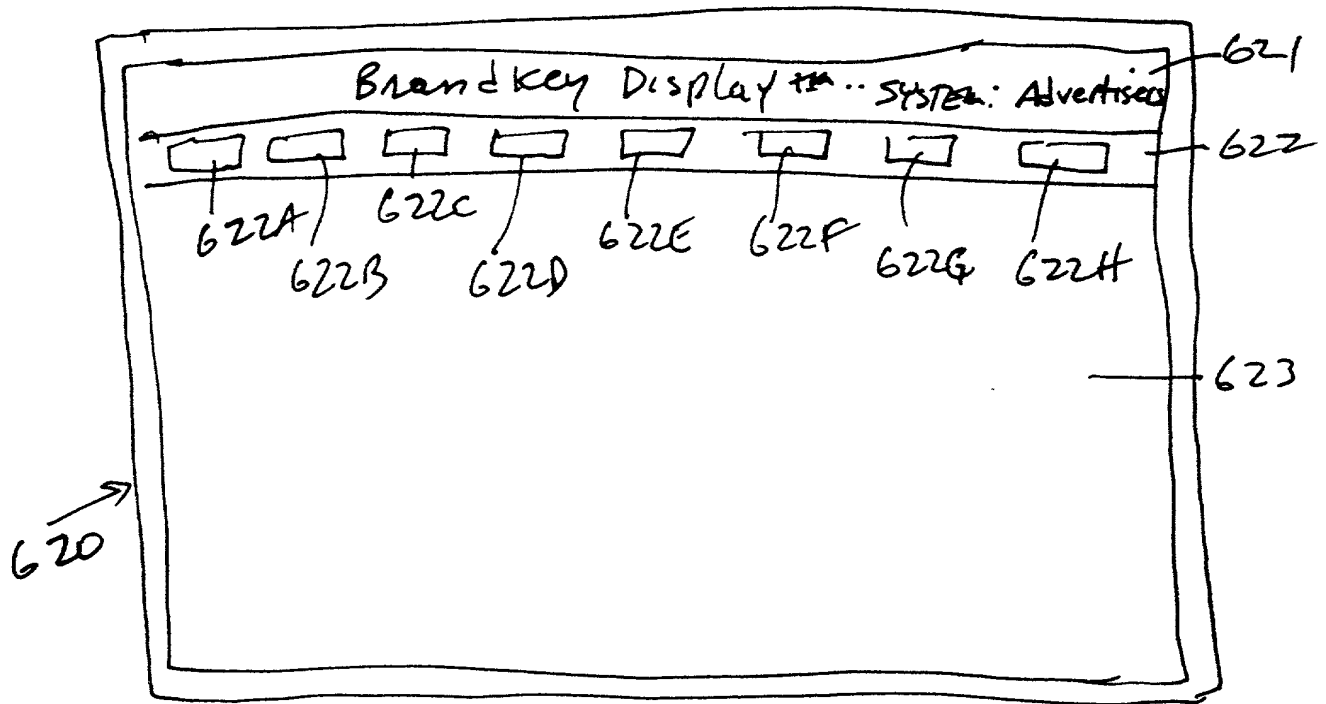 Brandkey Display™ .. SYSTEM: Advertisers
621
622
622A
622B
622C
622D
622E
622F
622G
622H
623
620